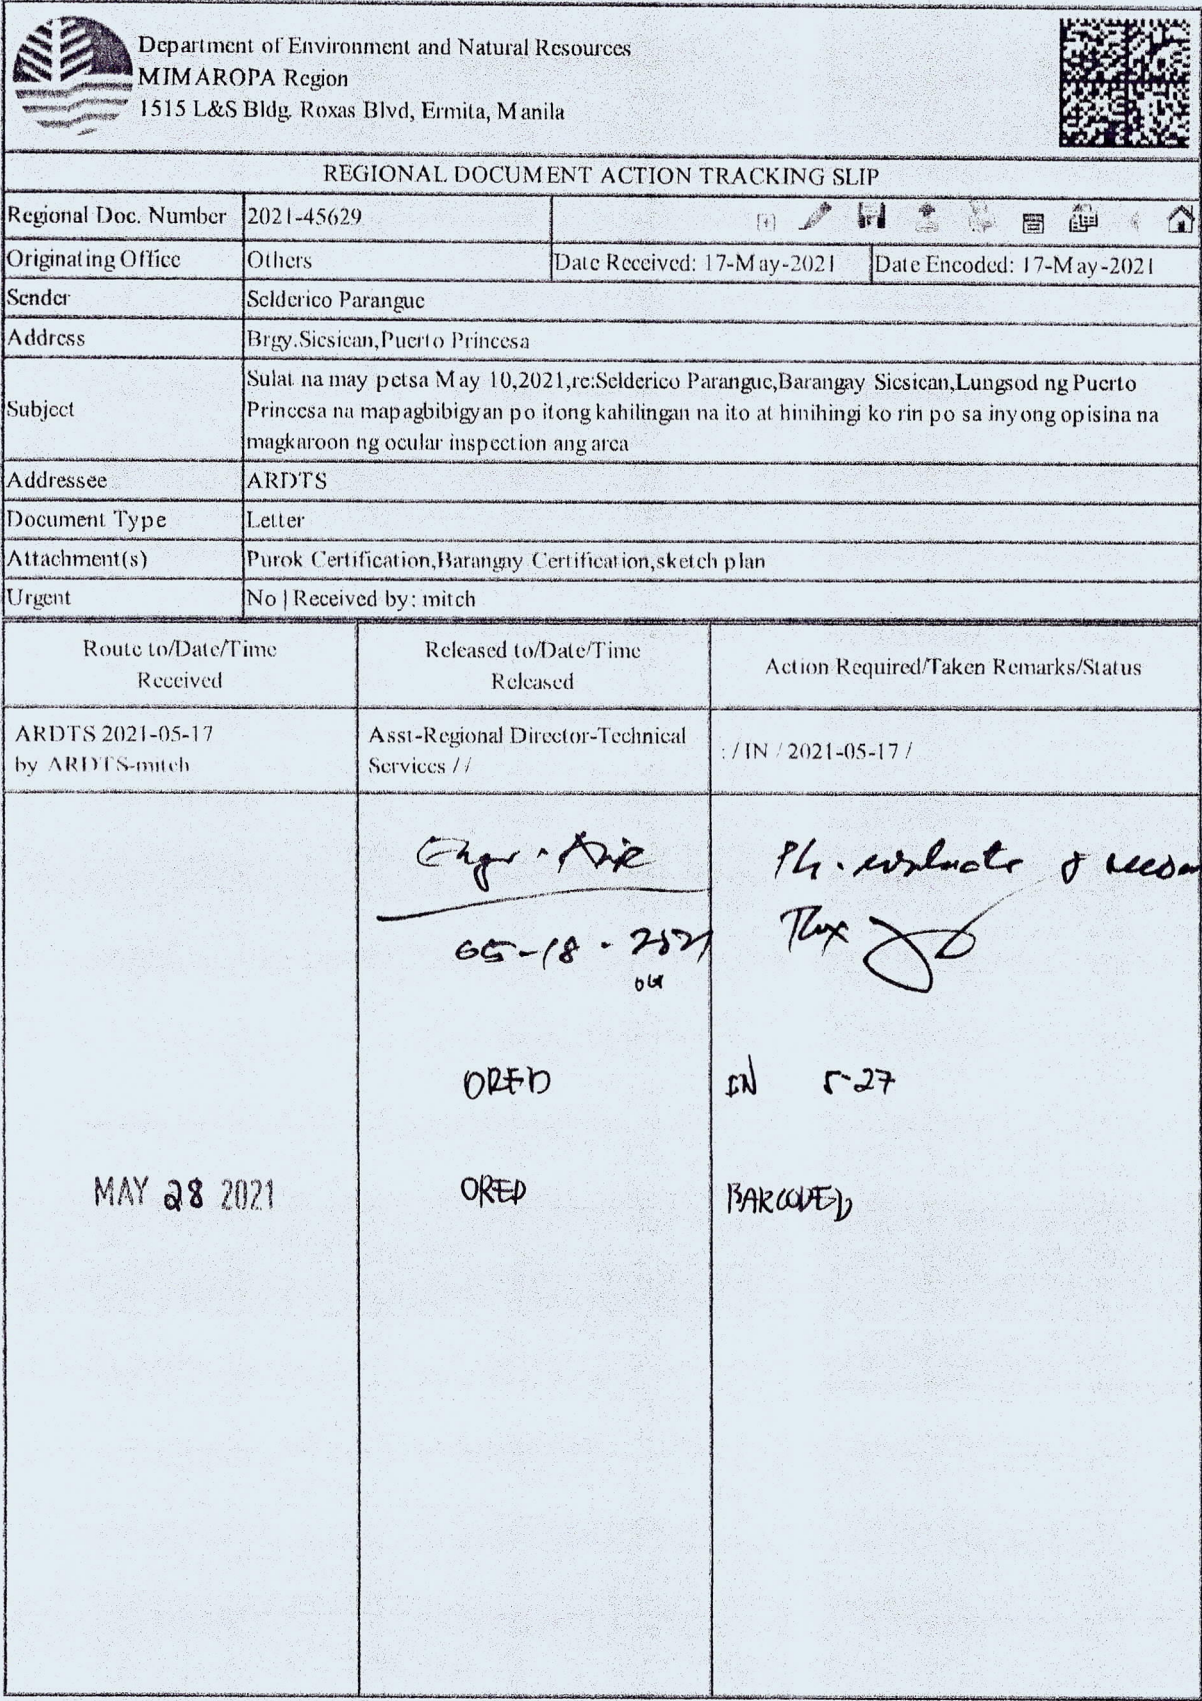 Department of Environment and Natural Resources
MIMAROPA Region
1515 L&S Bldg. Roxas Blvd, Ermita, Manila
REGIONAL DOCUMENT ACTION TRACKING SLIP
Regional Doc. Number 2021-45629
Originating Office Others Date Received: 17-May-2021 Date Encoded: 17-May-2021
Sender Selderico Parangue
Address Brgy.Sicsican,Puerto Princesa
Subject
Sulat na may petsa May 10,2021,re:Selderico Parangue,Barangay Sicsican,Lungsod ng Puerto
Princesa na mapagbibigyan po itong kahilingan na ito at hinihingi ko rin po sa inyong opisina na
magkaroon ng ocular inspection ang area
Addressee ARDTS
Document Type Letter
Attachment(s) Purok Certification,Barangay Certification,sketch plan
Urgent No | Received by: mitch
Route to/Date/Time
Received
Released to/Date/Time
Released
Action Required/Taken Remarks/Status
ARDTS 2021-05-17
by ARDTS-mitch
Asst-Regional Director-Technical
Services / /
: / IN / 2021-05-17 /
Engr.
evaluate &
05-18-2021
ORED IN 5-27
MAY 28 2021 ORED BARCODED